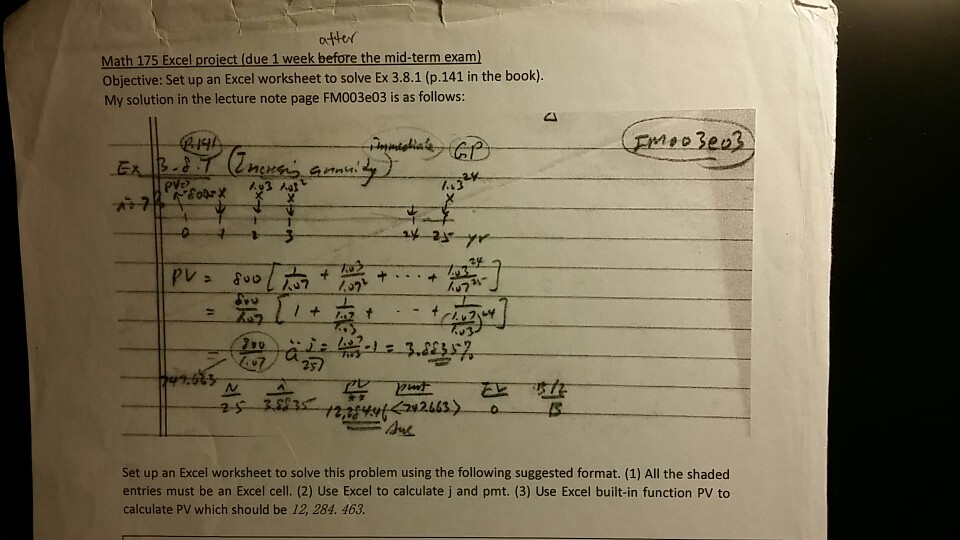 after
Math 175 Excel project (due 1 week before the mid-term exam)
Objective: Set up an Excel worksheet to solve Ex 3.8.1 (p.141 in the book).
My solution in the lecture note page FM003e03 is as follows:
P.141 immediate GP FM003e03
Ex 3.8.1 (Increasing annuity)
1.03 1.03² 1.03²⁴
PV=? 800 x x x x
0 1 2 3 24 25 yr
PV = 800 [ 1/1.07 + 1.03/1.07² + ... + 1.03²⁴/1.07²⁵ ]
= 800/1.07 [ 1 + 1/(1.07/1.03) + ... + 1/(1.07/1.03)²⁴ ]
= 800/1.07 ä 25| j = 1.07/1.03 - 1 = 3.8835%
747.663
N i PV pmt FV B/E
25 3.8835 12,284.46 <747.663> 0 B
Ans
Set up an Excel worksheet to solve this problem using the following suggested format. (1) All the shaded
entries must be an Excel cell. (2) Use Excel to calculate j and pmt. (3) Use Excel built-in function PV to
calculate PV which should be 12, 284. 463.